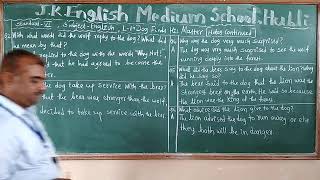 J.K. English Medium School. Hubli
Standard - VI Subject - English L-1 Dog Finds
Q2 With what words did the wolf reply to the dog? What did
he mean by that?
to the dog with the words "Why Not!"
but he had agreed to become the
take up service with the bear?
that the bear was stronger than the wolf,
decided to take up service with the bear.
Master (video Continued)
The dog was very much surprised to see the wolf
running deeply into the forest.
What did the bear say to the dog about the lion? Why
did he say so?
The bear said to the dog that the lion was the
strongest beast on the earth. He said so because
the lion was the king of the
What advice did the lion give to the dog?
The lion advised the dog to run away or else
they both will be in danger.